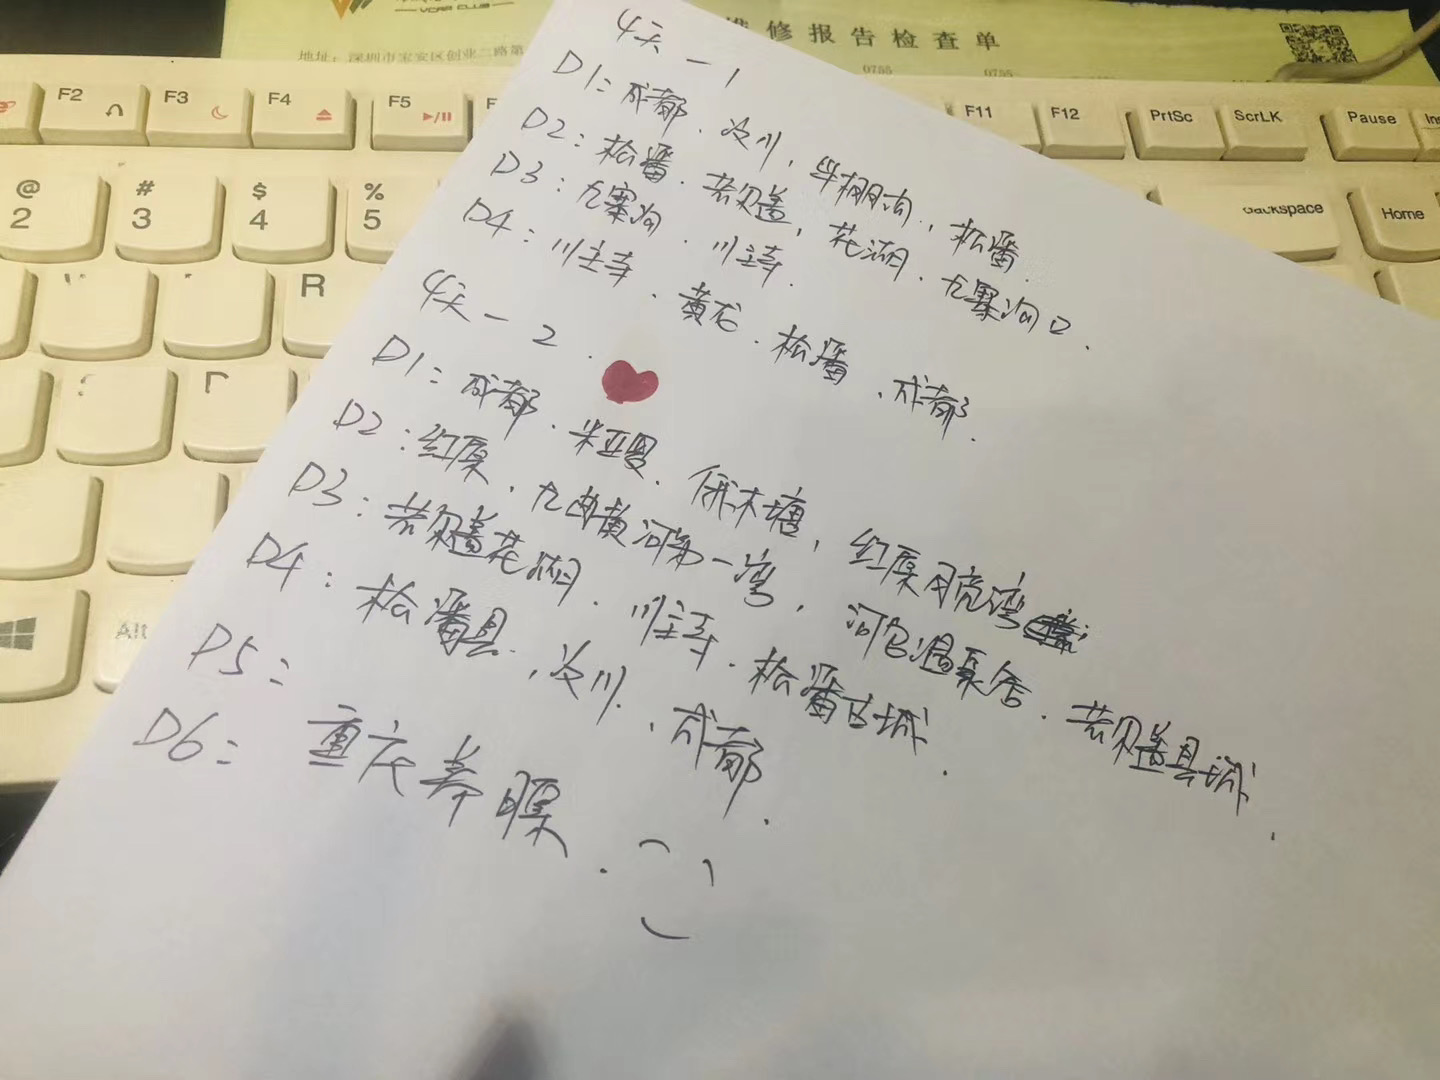 YCAR CLUB
维修报告检查单
地址：深圳市宝安区创业二路第
0755
0755
F2
F3
F4
F5
F11
F12
PrtSc
ScrLK
Pause
Ins
@
2
#
3
$
4
%
5
Backspace
Home
R
Alt
4天－1
D1：成都．汶川，毕棚沟．松潘
D2：松潘．若尔盖，花湖．九寨沟口．
D3：九寨沟．川主寺．
D4：川主寺．黄龙．松潘．成都．
4天－2．
D1：成都．米亚罗．俄木塘，红原月亮湾
D2：红原．九曲黄河第一湾，河它温泉舍．若尔盖县城．
D3：若尔盖花湖．川主寺．松潘古城．
D4：松潘县．汶川．成都．
D5：
D6：重庆养膘．